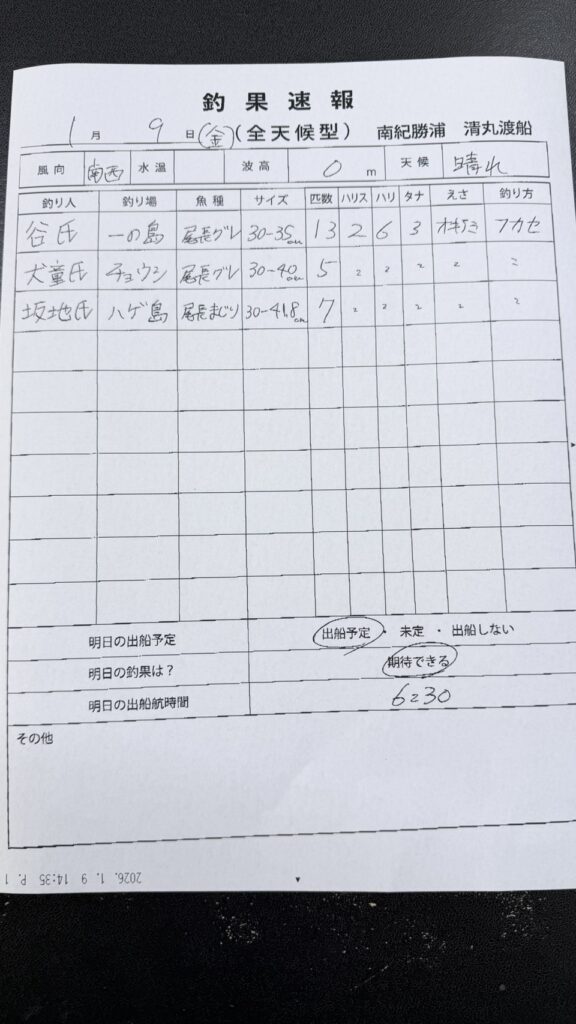 釣果速報
1月 9日(金)(全天候型) 南紀勝浦 清丸渡船
風向 南西 水温 波高 0 m 天候 晴れ
釣り人 釣り場 魚種 サイズ 匹数 ハリス ハリ タナ えさ 釣り方
谷氏 一の島 尾長グレ 30-35cm 13 2 6 3 オキアミ フカセ
犬童氏 チョウシ 尾長グレ 30-40cm 5 〃 〃 〃 〃 〃
坂地氏 ハゲ島 尾長まじり 30-41.8cm 7 〃 〃 〃 〃 〃
明日の出船予定 出船予定 ・ 未定 ・ 出船しない
明日の釣果は? 期待できる
明日の出船航時間 6:30
その他
2026. 1. 9 14:35 P. 1